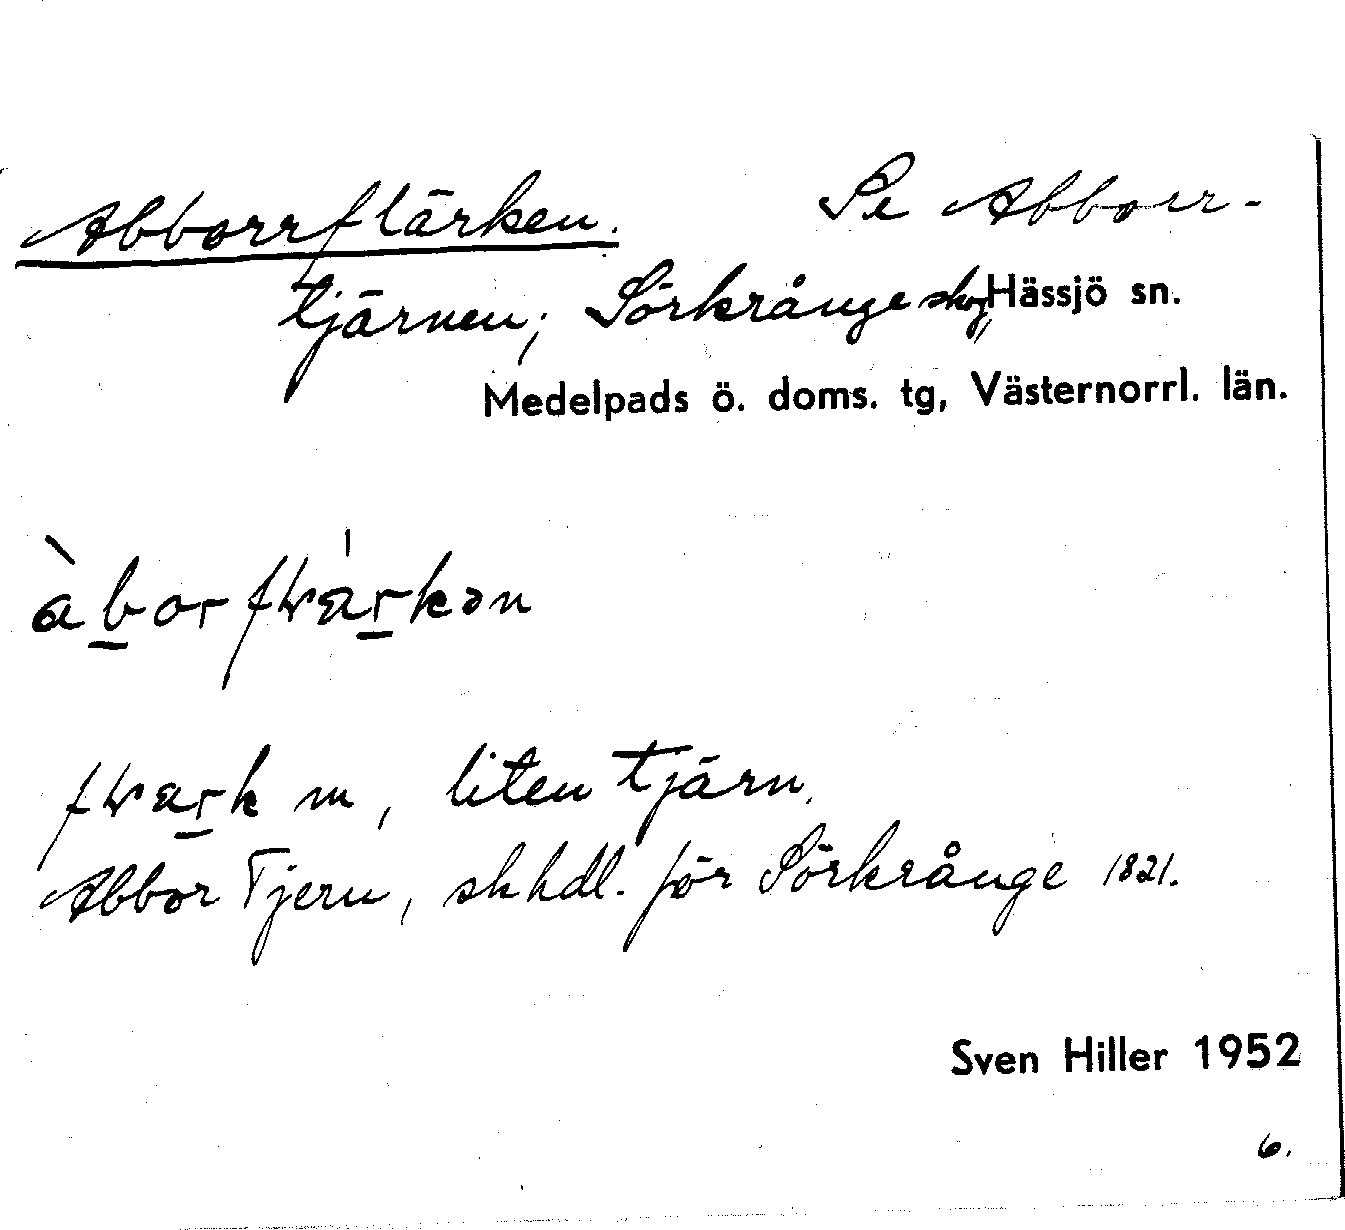 Abborrflärken. Se Abborr-
tjärnen; Sörkrånge skog, Hässjö sn.
Medelpads ö. doms. tg, Västernorrl. län.
liten tjärn.
Abbor Tjern, skhdl. för Sörkrånge 1821.
Sven Hiller 1952
6.